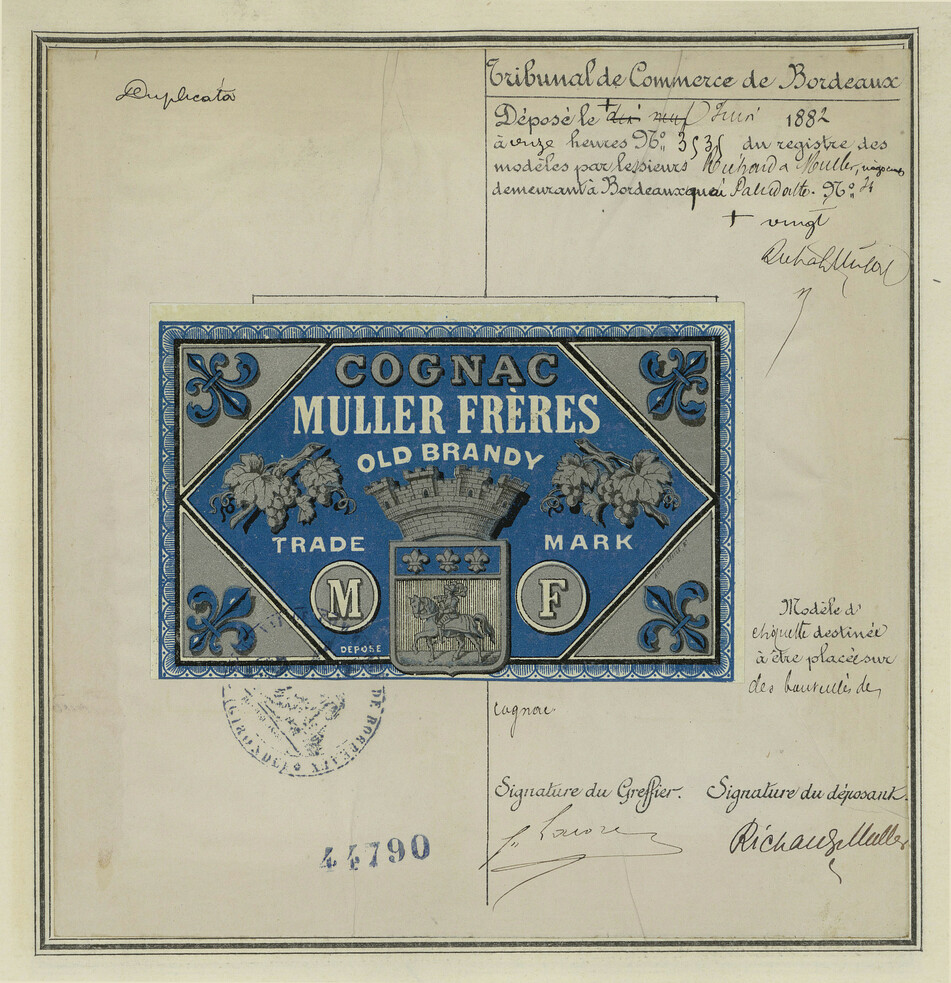 Duplicata
Tribunal de Commerce de Bordeaux
Déposé le + dix neuf Juin 1882
à onze heures No. 3535 du registre des
modèles par les sieurs Richard & Muller,
demeurant à Bordeaux quai No.
+ vingt
Richard & Muller
COGNAC
MULLER FRÈRES
OLD BRANDY
TRADE MARK
M F
DEPOSE
Modèle d'
etiquette destinée
à être placée sur
des bouteilles de
cognac
DE BORDEAUX
Signature du Greffier. Signature du déposant.
Richard & Muller
44790